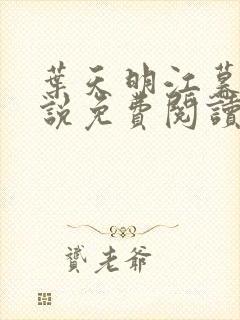 葉天明江暮
說免費閱讀
贊老爺